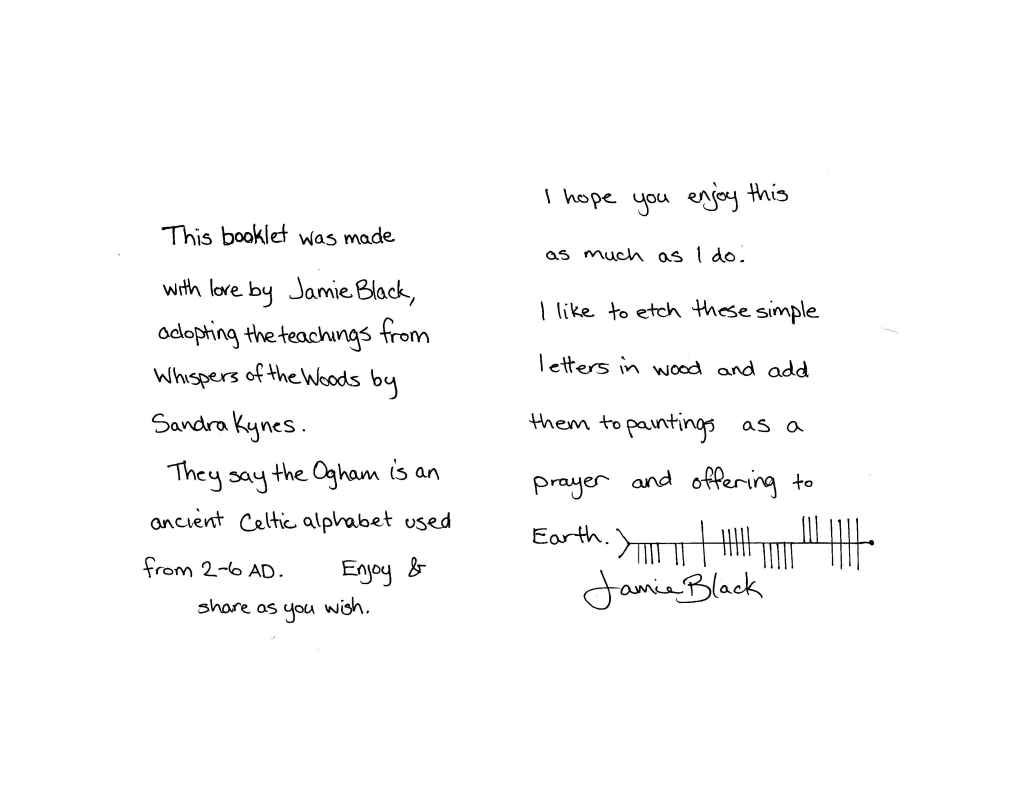 This booklet was made
with love by Jamie Black,
adopting the teachings from
Whispers of the Woods by
Sandra Kynes.
They say the Ogham is an
ancient Celtic alphabet used
from 2-6 AD. Enjoy &
share as you wish.
I hope you enjoy this
as much as I do.
I like to etch these simple
letters in wood and add
them to paintings as a
prayer and offering to
Earth. ᚛ᚄᚂᚐᚔᚅᚈᚓ
Jamie Black